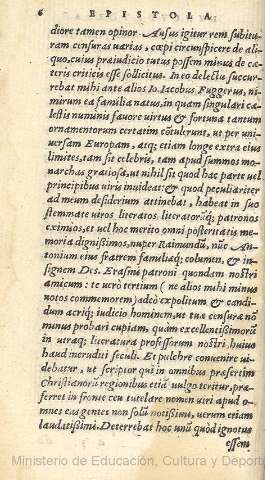 6 EPISTOLA
diore tamen opinor. Ausus igitur rem subitu-
ram censuras uarias, cœpi circunspicere de ali-
quo, cuius præiudicio tutus possem minus de cæ-
teris criticis esse sollicitus. In eo delectu succur-
rebat mihi ante alios Io. Iacobus Fuggerus, ni-
mirum ea familia natus, in quam singulari cæ-
lestis numinis fauore uirtus & fortuna tantum
ornamentorum certatim cōtulerunt, ut per uni-
uersam Europam, atq; etiam longe extra eius
limites, tam sit celebris, tam apud summos mo-
narchas gratiosa, ut nihil sit quod hac parte uel
principibus uiris inuideat: & quod peculiariter
ad meum desiderium attinebat, habeat in suo
stemmate uiros literatos literatorūq; patronos
eximios, et uel hoc merito omni posteritatis me-
moria dignissimos, nuper Raimundū, nūc An-
tonium eius fratrem familiæq; columen, & in-
signem Des. Erasmi patroni quondam nostri
amicum: te uerò tertium (ne alios mihi minus
notos commemorem) adeò expolitum & candi-
dum acriq; iudicio hominem, ut tuæ censuræ nō
minus probari cupiam, quàm excellentissimorū
in utraq; literatura professorum nostri huius
haud ineruditi seculi. Et pulchre conuenire ui-
debatur, ut scriptor qui in omnibus præsertim
Christianorū regionibus etiā uulgo teritur, præ-
ferret in fronte ceu tutelare nomen uiri apud o-
mnes eas gentes non solū notissimi, uerum etiam
laudatissimi. Deterrebat hoc unū quòd ignotus
essem
Ministerio de Educación, Cultura y Deporte